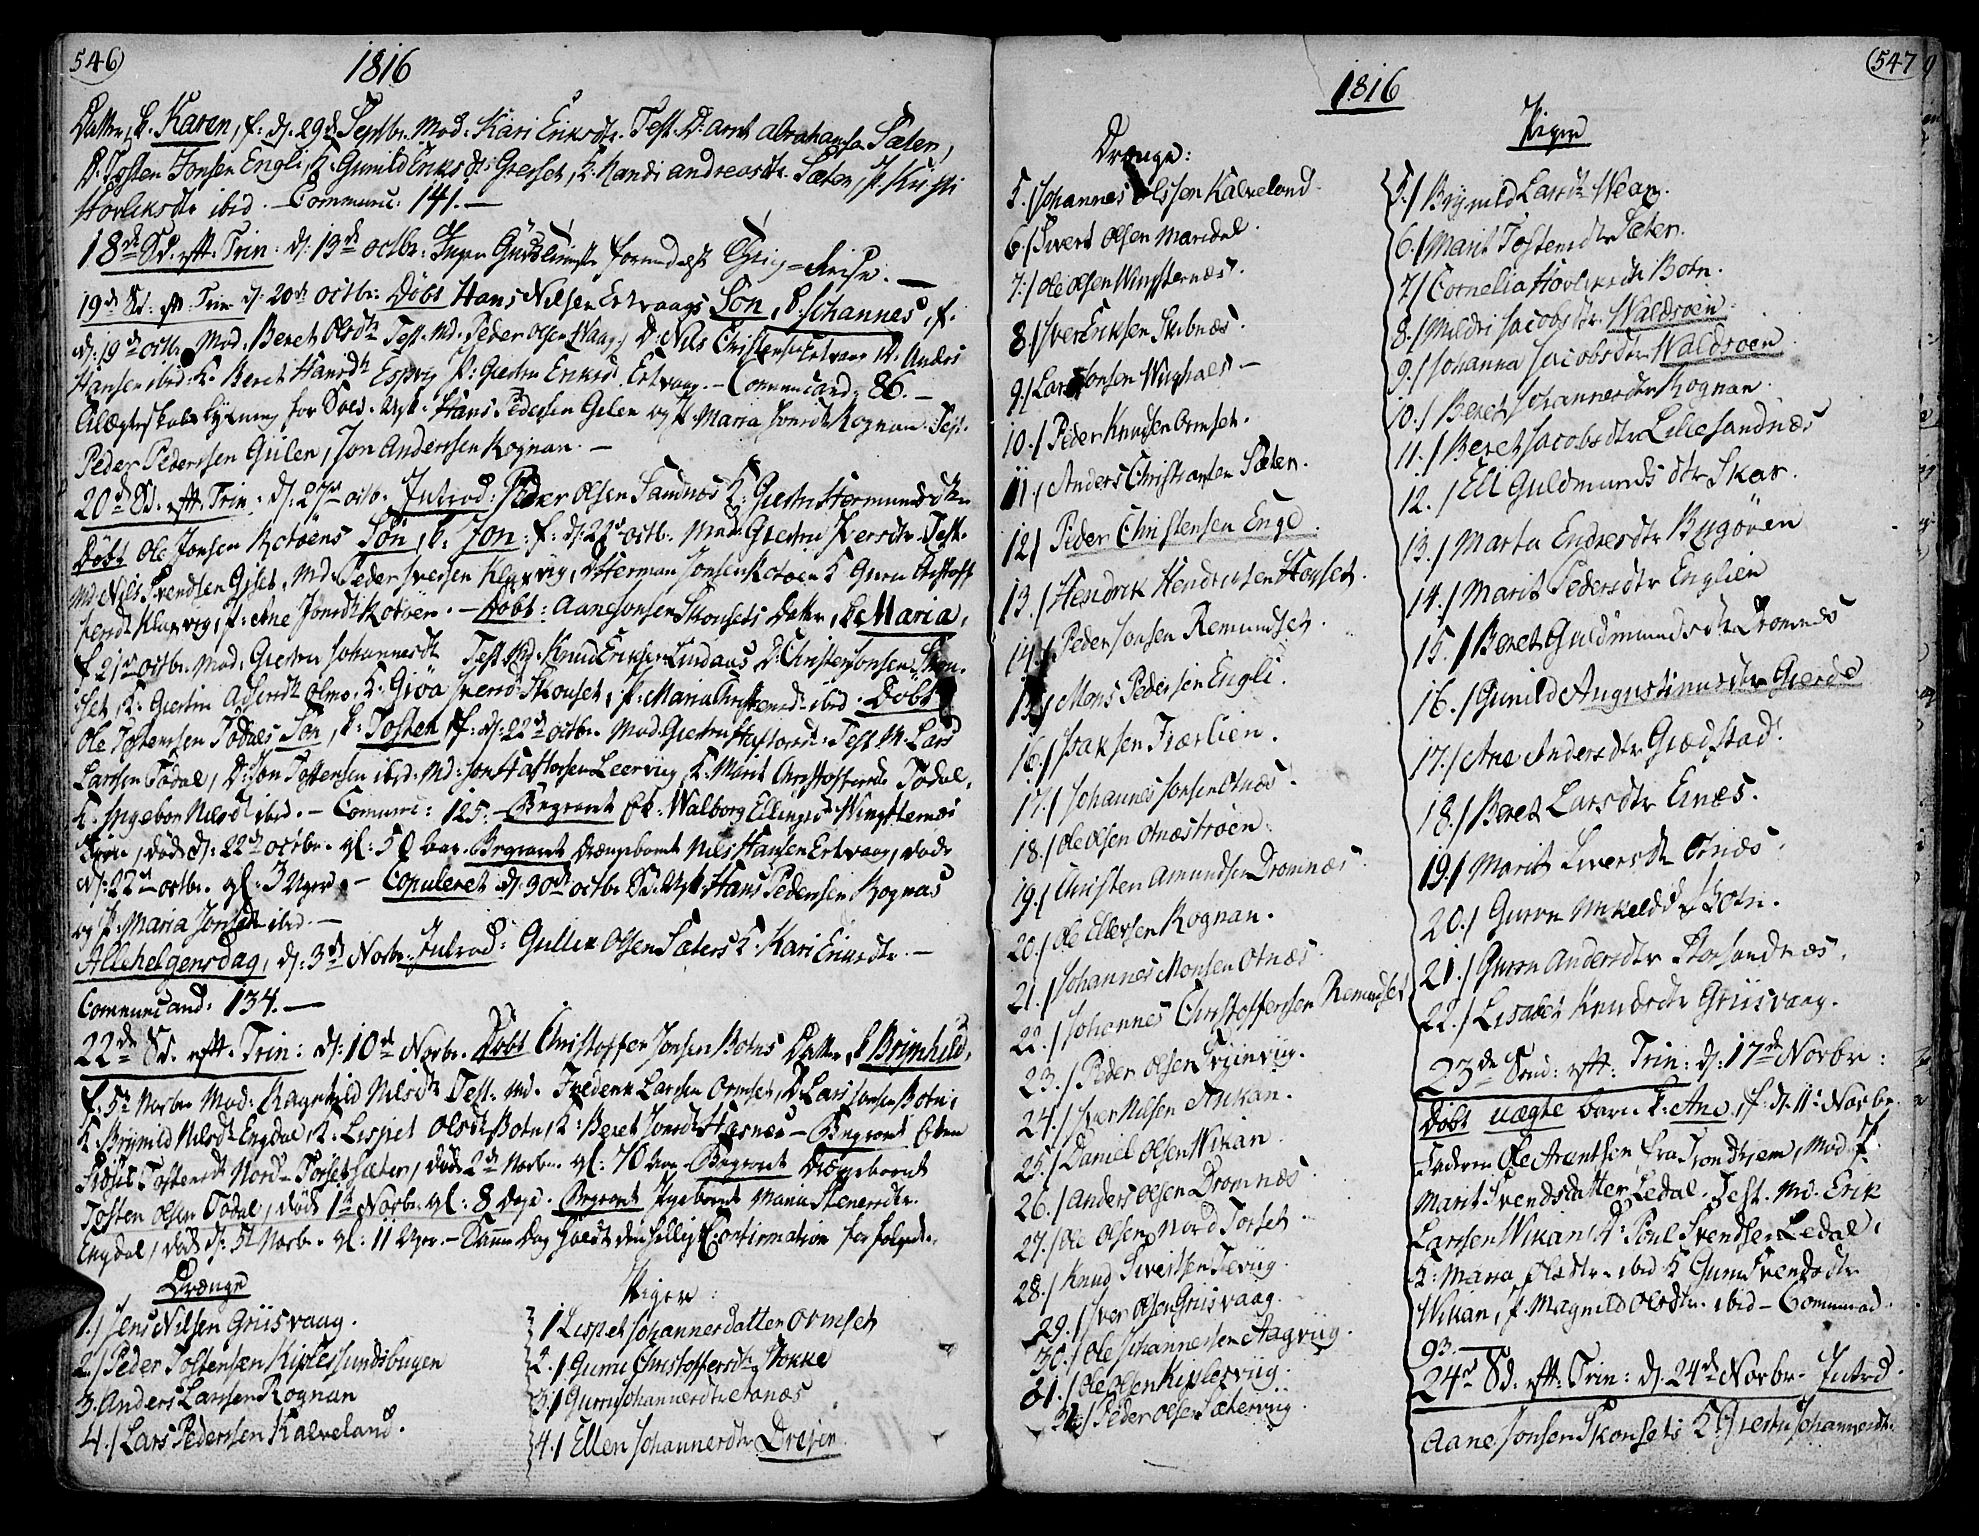 546
1816
Datter, k. Karen, f: dj. 29d Septbr. Mod: Kari Eriksdtr. Test. D: Arnt Abrahamsen Sæter,
D. Tosten Jonsen Engli, K. Gunild Eriks dtr Grøset, K. Randi Andreasdtr. Sæter, P. Kirsti
Hovliksdtr ibid. Communic: 141.
18de Sd. eft. Trin: dj. 13d octbr. Ingen Gudstieneste formedelst Syg=Reise.
19de Sd: eft. Trin dj: 20d octbr: Døbt Hans Nilsen Ertvaags Søn, k. Johannes, f.
dj: 19d octbr Mod. Beret Olsdtr Test. Md. Peder Olsen Vaag, D: Nils Christensen Ertvaag D. Anders
Hansen ibid: K. Beret Hansdtr Espvig P: Giertru Eriksd. Ertvaag. Communicand: 86.
Ægteskabs lysning for Sold. Ugk. Hans Pedersen Gulen og P. Maria Jonsdtr Rognan. Test.
Peder Pedersen Gulen, Jon Andersen Rognan.
20de Sd. eft. Trin: dj: 27de octb. Introd: Peder Olsen Sandnæs K: Giertru Hermundsdtr
Døbt Ole Jonsen Rotøens Søn, k: Jon: f: dj. 22d octb. Mod: Giertru Iversdtr Test.
Md Nils Svendsen Giset, Md. Peder Iversen Kluxvig, D Herman Jonsen Rotøen K Guru Christoff
fersdtr Kluxvig, P: Ane Jonsdtr Rotøen. Døbt: Aane Jonsen Skonsets Datter, k Maria,
f. 21de octbr. Mod: Giertru Johannesdtr Test Md. Knud Eriksen Lindaas D. Christen Jonsen Skon-
set, K: Giertru Olmo. K. Giøa Iversd. Skonset, P: Maria Christensdtr ibid. Døbt
Ole Tostensen Todals Søn, k: Tosten f: dj: 22d octbr. Mod. Giertru Haftorsd: Test M. Lars
Larsen Todal, D: Jon Tostensen ibid: Md: Jon Haftorsen Leervig, K. Marit Christoffersd. Todal,
K. Ingebor Nilsdtr ibid. Comunic: 125. Begravet Ek: Walborg Ellingsd: Wingsternæs
døde dj: 22de octbr. gl: 50 Aar. Begravet Drængebarnet Nils Hansen Ertvaag, døde
dj: 22de octbr. gl: 3 Uger. Copuleret dj: 30de octbr Sd: Ugk Hans Pedersen Rognas
og P. Maria Jonsdtr ibid.
Allehelgensdag, dj: 3de Novbr. Introd: Gullik Olsen Sæters K. Kari Eriksdtr.
Communicand: 134.
22de Sd. eft. Trin: dj: 10de Novbr. Døbt Christopher Jonsen Botns Datter, k Brynhild,
f. 5te Novbr. Mod: Ragnhild Nilsdtr Test. Md. Frederik Larsen Ormset, D Lars Jonsen Botn,
K. Brynild Nilsdtr Engdal, K. Lispet Olsdtr Botn, K: Beret Jonsdtr Hasnæs Begravet Enken
Sidsel Tostensdtr Nord-Torset Sæter, døde 2de Novbr. gl: 70 Aar Begravet Drængebarnet
Tosten Olsen Todal, døde 1te Novbr. gl: 8 Dage. Begravet Pigebarnet Maria Stenersdtr.
Engdal, døde dj: 5te Novbr. gl: 11 Uger. Samme Dag holdt den hellige Confirmation for følgende.
Drænge
1./ Jens Nilsen Griisvaag.
2./ Peder Tostensen Kiplessundsbugen
3. Anders Larsen Rognan
4./ Lars Pedersen Kalveland.
Piger:
1 Lispet Johannesdatter Ormset
2./ Gurru Christoffersdtr Stokke
3./ Gurru Johannesdtr Otnæs
4./ Ellen Johannesdtr Drejen
547
1816
Drænge:
5./ Johannes Olsen Kalveland.
6./ Sivert Olsen Maridal.
7./ Ole Olsen Wingsternæs.
8./ Iver Eriksen Stubnæs.
9./ Lars Jonsen Wughals.
10./ Peder Knudsen Ormset.
11./ Anders Christiansen Sæter.
12./ Peder Christensen Enge.
13./ Hendrik Hendriksen Hovset.
14./ Peder Jonsen Remundset.
15./ Mons Pedersen Engli.
16./ Isaksen Fiærlien.
17./ Johannes Jonsen Otnæs.
18./ Ole Olsen Otnæstrøen.
19./ Christen Amundsen Dromnæs.
20./ Ole Ellevsen Rognan.
21./ Johannes Monsen Otnæs.
22./ Johannes Christoffersen Remundset
23./ Peder Olsen Fyinviig.
24./ Iver Nilsen Stikan.
25./ Daniel Olsen Wikan.
26./ Anders Olsen Dromnæs.
27./ Ole Olsen Nord Torset.
28./ Knud Sivertsen Teviig.
29./ Iver Olsen Griisvaag.
30./ Ole Johannessen Aagviig.
31./ Ole Olsen Kiplesviig.
32./ Peder Olsen Sæterviig.
Piger
5./ Brynild Larsdtr Weag.
6./ Marit Tostensdtr Sæter.
7./ Cornelia Hovliksdtr Botn.
8./ Mildri Jacobsdtr. Waldsøen.
9./ Johanna Jacobsdtr Waldsøen.
10./ Beret Johannesdtr Rognan.
11./ Beret Jacobsdtr Lillesandnæs
12./ Eli Guldmunds dtr Skar.
13./ Marta Endresdtr Bugøien
14./ Marit Pedersdtr Englien
15./ Beret Guldmundsdtr Dromnæs
16./ Gunild Augustinusdtr Gierde
17./ Ane Andersdtr Grædstad.
18./ Beret Larsdtr Einæs.
19./ Marit Iversdtr Otnæs.
20./ Gurru Mikelsdtr Botn.
21./ Gurru Andersdtr Storsandnæs.
22./ Lisabet Knudsdtr Griisvaag.
23de Sønd: eft: Trin: dj: 17de Novbr:
Døbt uægte barn k: Ane, f: d. 11te Novbr.
Faderen Ole Arentsen fra Trondhjem, Mod. P.
Marit Svendsdatter Ledal. Test. Md. Erik
Larsen Wikan, D: Poul Svendsen Ledal,
K: Maria Olsdtr. ibid K Guru Svendsdtr
Wikan, P. Magnild Olsdtr. ibid Communicd.
93.
24de Sd. eft. Trin: dj. 24de Novbr. Introd.
Aane Jonsen Skonsets K: Giertru Johannesdtr.